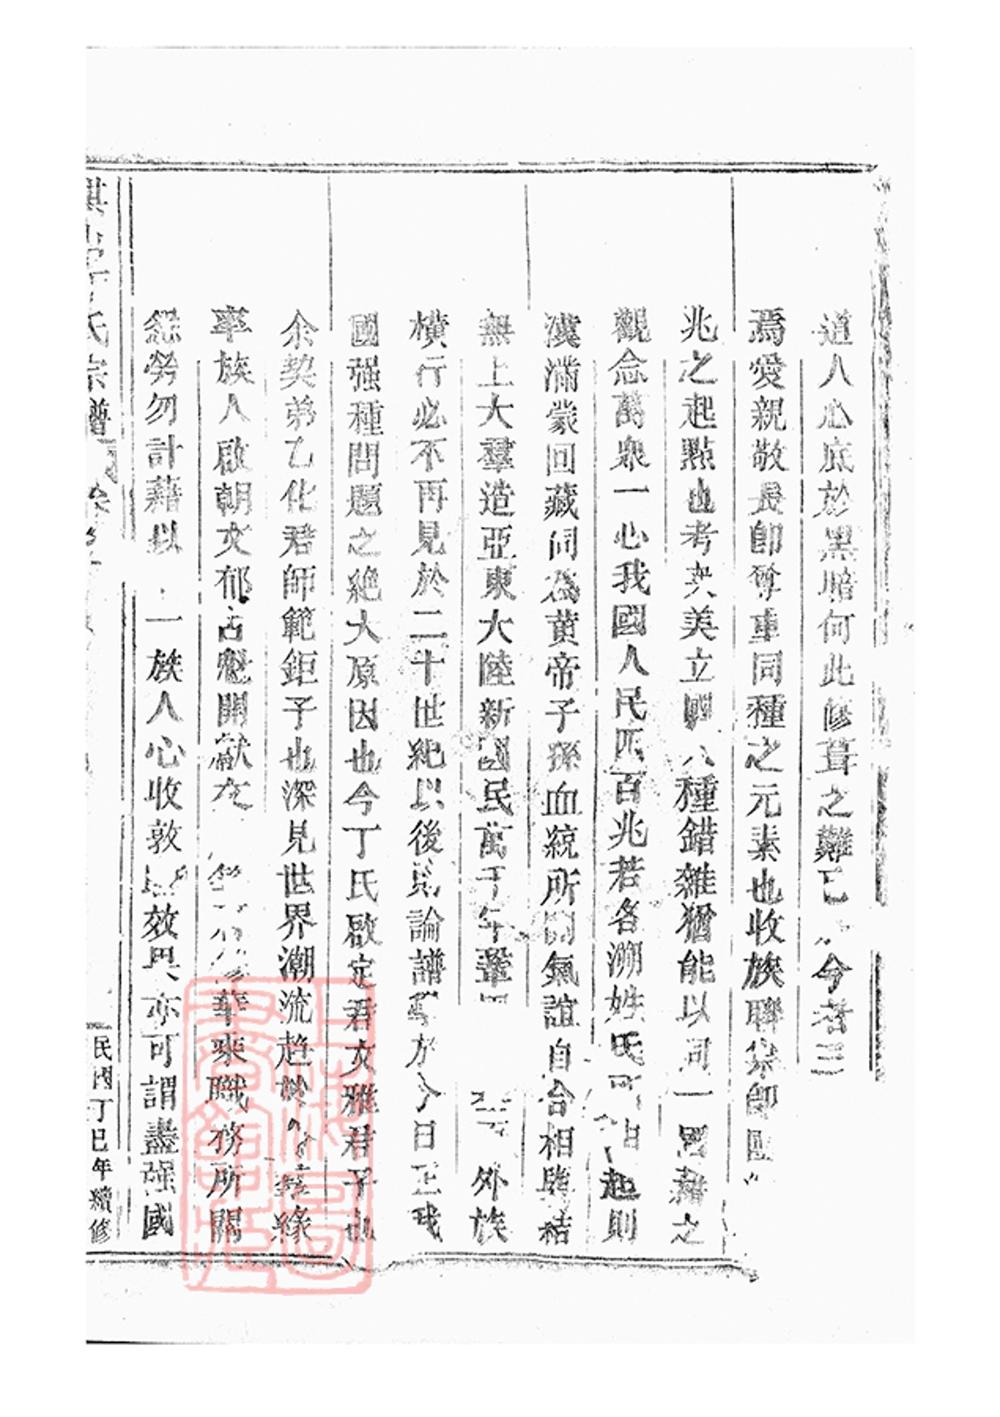 道人心底於黑暗何此修葺之難已今者三
焉愛親敬長即尊重同種之元素也收族聯宗即國
兆之起點也考英美立國人種錯雜猶能以同一國籍之
觀念萬衆一心我國人民四百兆若各溯姓氏所由起則
漢滿蒙回藏同爲黄帝子孫血統所關氣誼自合相與結
無上大羣造亞東大陸新國民萬千年鞏外族
橫行必不再見於二十世紀以後則論譜學於今日正我
國强種問題之絶大原因也今丁氏啟定君文雅君子也
余契弟乙化君師範鉅子也深見世界潮流趨緣
率族人啟朝文郁占魁開獻在華東職務所關
怨勞勿計藉以一族人心收敦效果亦可謂盡强國
氏宗譜卷
民國丁巳年續修